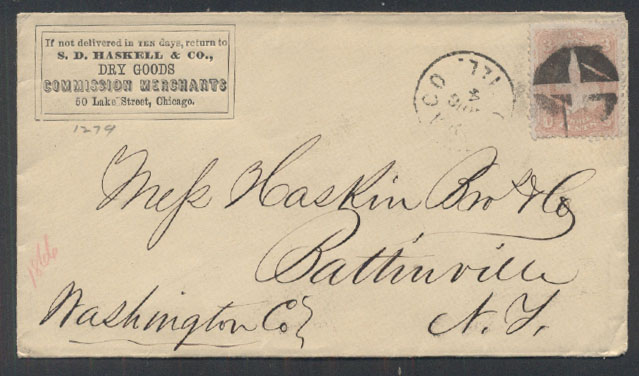 If not delivered in TEN days, return to
S. D. HASKELL & CO.,
DRY GOODS
COMMISSION MERCHANTS
50 Lake Street, Chicago.
1279
CO ILL.
Mess Haskin Bro & Co
Battinville
Washington Co
N. Y.
1866